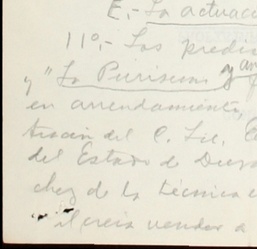 E.- La actuaci
11º.- Los predi
y "La Purisima y an
en arrendamiento,
tración del C. Lic.
del Estado de Duran
chez de la técnica
el creia vender a